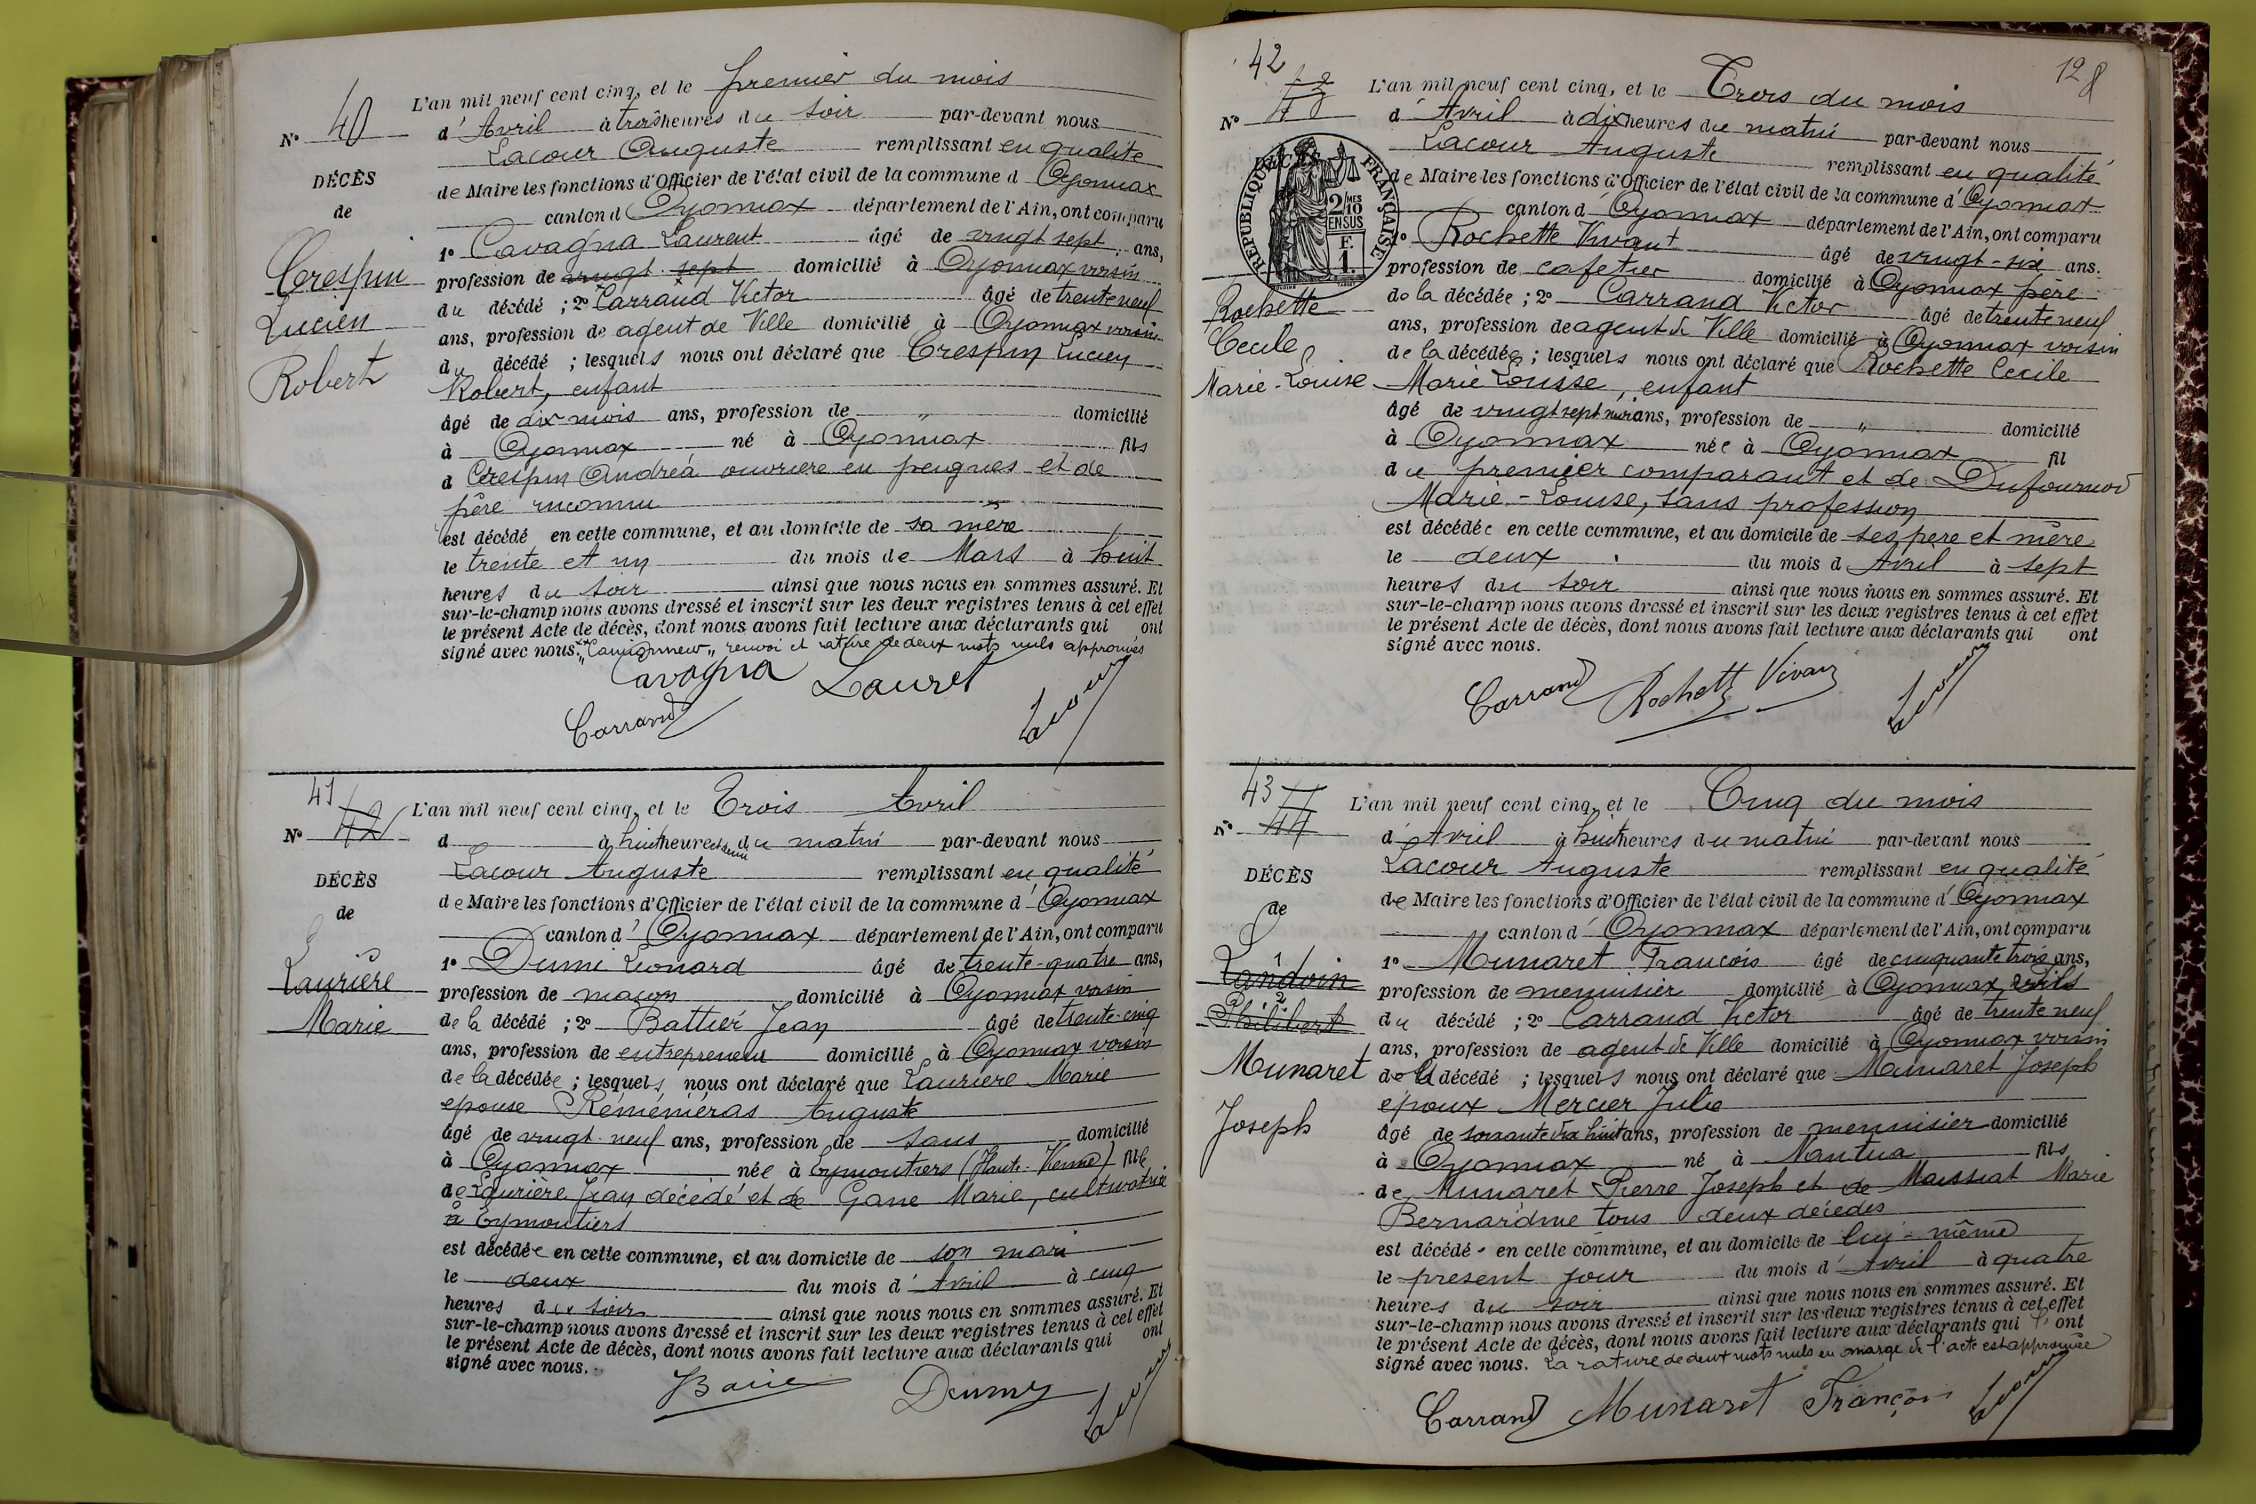 N° 40
DÉCÈS
de
Crespin
Lucien
Robert
L'an mil neuf cent cinq, et le premier du mois
d'Avril à trois heures du soir par-devant nous
Lacour Auguste remplissant en qualité
de Maire les fonctions d'Officier de l'état civil de la commune d Oyonnax
canton d Oyonnax département de l'Ain, ont comparu
1° Cavagna Laurent âgé de vingt sept ans,
profession de vingt sept domicilié à Oyonnax voisin
du décédé ; 2° Carrand Victor âgé de trente neuf
ans, profession de agent de Ville domicilié à Oyonnax voisin
du décédé ; lesquels nous ont déclaré que Crespin Lucien
Robert, enfant
âgé de dix mois ans, profession de " domicilié
à Oyonnax né à Oyonnax fils
d Crespin Andréa ouvrière en peignes et de
père inconnu
est décédé en cette commune, et au domicile de sa mère
le trente et un du mois de Mars à huit
heures du soir ainsi que nous nous en sommes assuré. Et
sur-le-champ nous avons dressé et inscrit sur les deux registres tenus à cet effet
le présent Acte de décès, dont nous avons fait lecture aux déclarants qui ont
signé avec nous. "Camionneur" renvoi et rature de deux mots nuls approuvés
Cavagna Lauret
Carrand Lacour
41
N° 42
DÉCÈS
de
Laurière
Marie
L'an mil neuf cent cinq, et le Trois Avril
d à huit heures et demie du matin par-devant nous
Lacour Auguste remplissant en qualité
de Maire les fonctions d'Officier de l'état civil de la commune d'Oyonnax
canton d'Oyonnax département de l'Ain, ont comparu
1° Dumi Leonard âgé de trente-quatre ans,
profession de maçon domicilié à Oyonnax voisin
de la décédé ; 2° Battier Jean âgé de trente-cinq
ans, profession de entrepreneur domicilié à Oyonnax voisin
de la décédée ; lesquels nous ont déclaré que Laurière Marie
epouse Réméniéras Auguste
âgé de vingt-neuf ans, profession de sans domicilié
à Oyonnax née à Eymoutiers (Haute-Vienne) fille
de Laurière Jean décédé et de Gane Marie, cultivatrice
à Eymoutiers
est décédée en cette commune, et au domicile de son mari
le deux du mois d'Avril à cinq
heures du soir ainsi que nous nous en sommes assuré. Et
sur-le-champ nous avons dressé et inscrit sur les deux registres tenus à cet effet
le présent Acte de décès, dont nous avons fait lecture aux déclarants qui ont
signé avec nous.
Dumy Lacour
42
128
N°
RÉPUBLIQUE FRANÇAISE
2/10MES
EN SUS
F.
1.
DÉCÈS
Rochette
Cecile
Marie-Louise
L'an mil neuf cent cinq, et le Trois du mois
d'Avril à dix heures du matin par-devant nous
Lacour Auguste remplissant en qualité
de Maire les fonctions d'Officier de l'état civil de la commune d'Oyonnax
canton d'Oyonnax département de l'Ain, ont comparu
1° Rochette Vivant âgé de vingt-six ans.
profession de cafetier domicilié à Oyonnax père
de la décédée ; 2° Carrand Victor âgé de trente neuf
ans, profession de agent de Ville domicilié à Oyonnax voisin
de la décédée ; lesquels nous ont déclaré que Rochette Cecile
Marie Louise, enfant
âgé de vingt sept mois ans, profession de " domicilié
à Oyonnax née à Oyonnax fil
du premier comparant et de Dufournod
Marie-Louise, sans profession
est décédée en cette commune, et au domicile de ses père et mère
le deux du mois d Avril à sept
heures du soir ainsi que nous nous en sommes assuré. Et
sur-le-champ nous avons dressé et inscrit sur les deux registres tenus à cet effet
le présent Acte de décès, dont nous avons fait lecture aux déclarants qui ont
signé avec nous.
Carrand Rochette Vivan Lacour
43
N° 44
DÉCÈS
de
1
Landoin
2
Philibert
Munaret
Joseph
L'an mil neuf cent cinq, et le Cinq du mois
d'Avril à huit heures du matin par-devant nous
Lacour Auguste remplissant en qualité
de Maire les fonctions d'Officier de l'état civil de la commune d'Oyonnax
canton d'Oyonnax département de l'Ain, ont comparu
1° Munaret François âgé de cinquante trois ans,
profession de menuisier domicilié à Oyonnax fils
du décédé ; 2° Carrand Victor âgé de trente neuf
ans, profession de agent de Ville domicilié à Oyonnax voisin
de la décédé ; lesquels nous ont déclaré que Munaret Joseph
epoux Mercier Julie
âgé de soixante dix huit ans, profession de menuisier domicilié
à Oyonnax né à Nantua fils
de Munaret Pierre Joseph et de Maissiat Marie
Bernardine tous deux décédés
est décédé en cette commune, et au domicile de lui-même
le présent jour du mois d'Avril à quatre
heures du soir ainsi que nous nous en sommes assuré. Et
sur-le-champ nous avons dressé et inscrit sur les deux registres tenus à cet effet
le présent Acte de décès, dont nous avons fait lecture aux déclarants qui ont
signé avec nous. La rature de deux mots nuls en marge de l'acte est approuvée
Carrand Munaret François Lacour